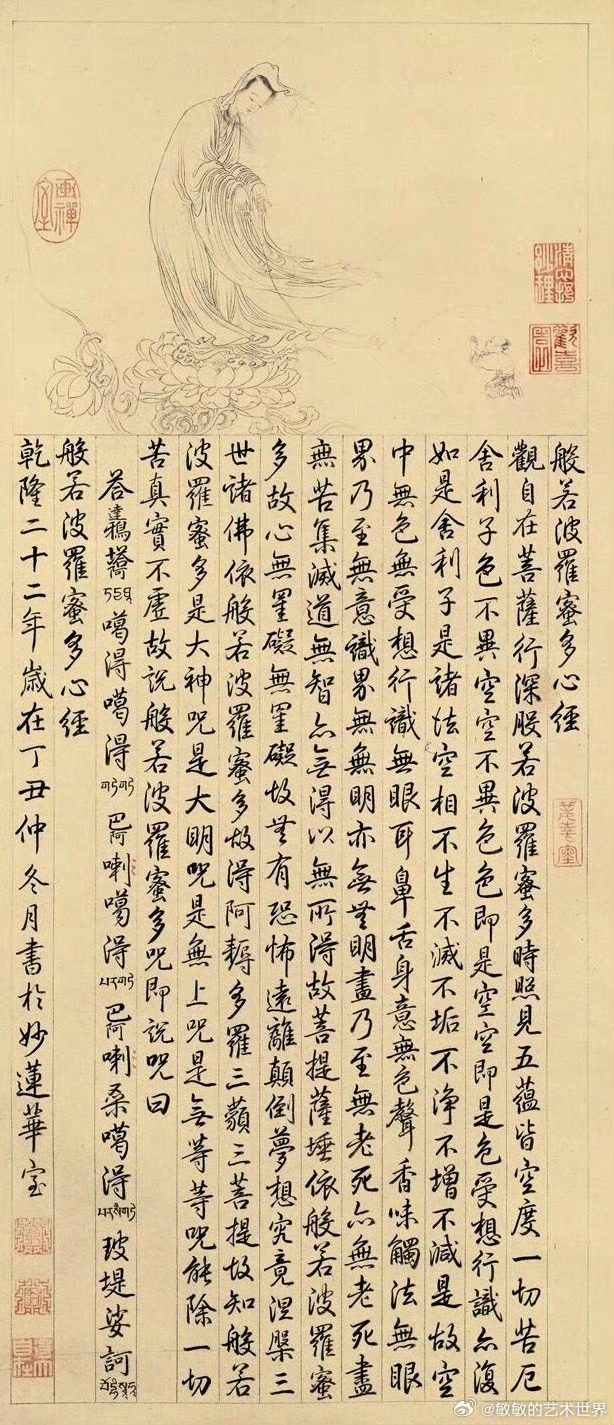 般若波羅蜜多心經
觀自在菩薩行深般若波羅蜜多時照見五蘊皆空度一切苦厄
舍利子色不異空空不異色色即是空空即是色受想行識亦復
如是舍利子是諸法空相不生不滅不垢不淨不增不減是故空
中無色無受想行識無眼耳鼻舌身意無色聲香味觸法無眼
界乃至無意識界無無明亦無無明盡乃至無老死亦無老死盡
無苦集滅道無智亦無得以無所得故菩提薩埵依般若波羅蜜
多故心無罣礙無罣礙故無有恐怖遠離顛倒夢想究竟涅槃三
世諸佛依般若波羅蜜多故得阿耨多羅三藐三菩提故知般若
波羅蜜多是大神咒是大明咒是無上咒是無等等咒能除一切
苦真實不虛故說般若波羅蜜多咒即說咒曰
答噶得噶得巴阿喇噶得巴阿喇桑噶得玻堤娑訶
般若波羅蜜多心經
乾隆二十二年歲在丁丑仲冬月書於妙蓮華室
畫禪室
@敏敏的艺术世界